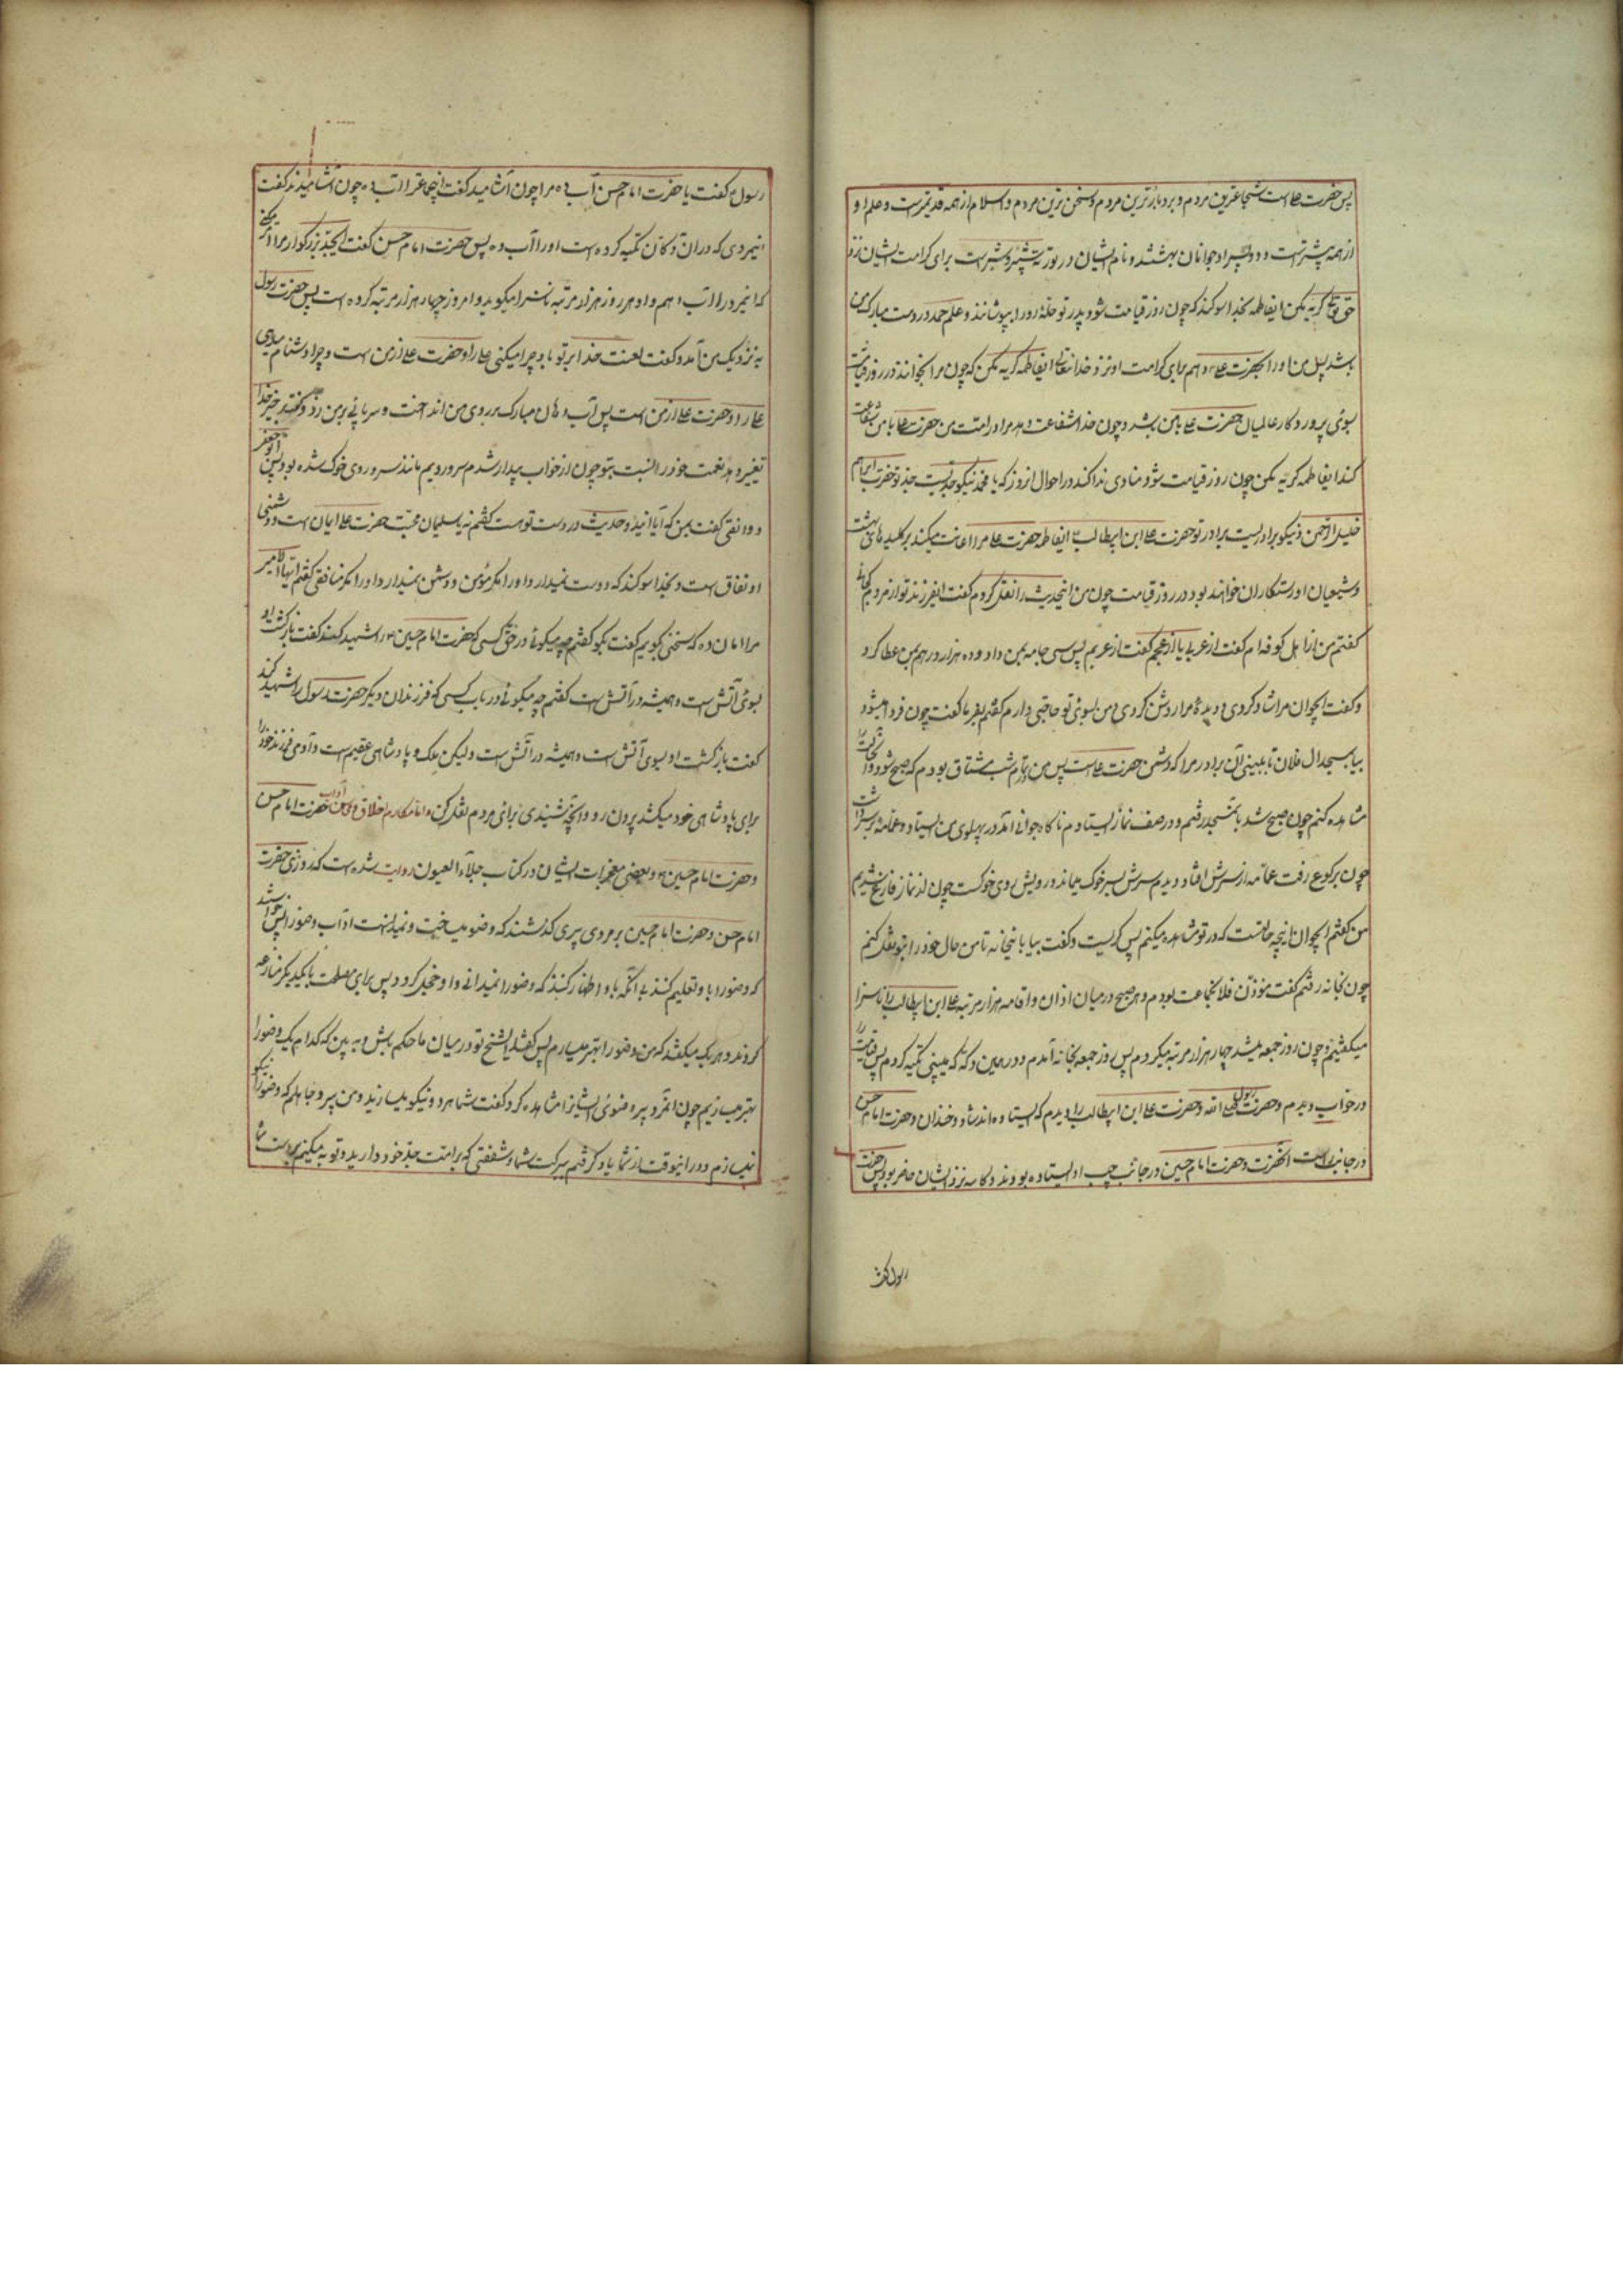 پس حضرت علی است شجاعترین مردم و بردبارترین مردم و سخی ترین مردم و اسلام از همه قدیمتر است و علم او
از همه بیشتر است و دو پسر او جوانان بهشتند و نام ایشان در توریة شبر و شبیر است برای کرامت ایشان نزد
حق تعالی گریه مکن ایفاطمه بخدا سوکند که چون روز قیامت شود پدر تو حله در او بپوشانند و علم حمد در دست مبارک من
باشد پس من او را بحضرت علی دهم برای کرامت او نزد خدایتعالی ایفاطمه گریه مکن که چون مرا بخوانند در روز قیامت
بسوی پروردکار عالمیان حضرت علی با من باشد و چون خدا شفاعت دهد مرا در امت من حضرت علی با من شفاعت
کند ایفاطمه گریه مکن چون روز قیامت شود منادی ندا کند در احوال انروز که یا محمد نیکو جدیست جد تو حضرت ابراهیم
خلیل الرحمن و نیکو برادریست برادر تو حضرت علی ابن ابیطالب ایفاطمه حضرت علی مرا اعانت میکند بر کلیدهای بهشت
و شیعیان او رستکاران خواهند بود در روز قیامت چون من اینحدیث را نقل کردم کفت ایفرزند تو از مردم کجائی
کفتم من از اهل کوفه ام کفت از عربی یا از عجم کفت از عربم پس سی جامه بمن داد و ده هزار درهم بمن عطا کرد
و کفت ایجوان مرا شاد کردی و دیدۀ مرا روشن کردی و من بسوی تو حاجتی دارم کفتم بفرما کفت چون فردا میشود
بیا بمسجد ال فلان تا ببینی آن برادر مرا که دشمن حضرت علی است پس من تمام شب مشتاق بودم که صبح شود و او را
مشاهده کنم چون صبح شد بمسجد رفتم و در صف نماز ایستادم ناکاه جوانی امد در پهلوی من ایستاد و عمامه بر سر داشت
چون برکوع رفت عمامه از سرش افتاد دیدم سرش بسر خوک میماند و رویش روی خوکست چون از نماز فارغ شدیم
من کفتم ایجوان اینچه حالتست که در تو مشاهده میکنم پس کریست و کفت بیا باینخانه تا من حال خود را بتو نقل کنم
چون بخانه رفتم کفت مؤذن فلان جماعت بودم و هر صبح در میان اذان و اقامه هزار مرتبه علی ابن ابیطالب را ناسزا
میکفتم و چون روز جمعه میشد چهار هزار مرتبه میکردم پس روز جمعه بخانه آمدم و در همین دکه که میبینی تکیه کردم پس قیامت را
در خواب دیدم و حضرت رسول الله و حضرت علی ابن ابیطالب را دیدم که ایستاده اند شاد و خندان و حضرت امام حسن
در جانب راست انحضرت و حضرت امام حسین در جانب چپ او ایستاده بودند و کاسه نزد ایشان حاضر بود پس حضرت
رسول کفت
رسول کفت یا حضرت امام حسن آب ده مرا چون آشامید کفت اینجماعترا آب ده چون آشامیدند کفت
اینمردی که در ان دکان تکیه کرده است او را آب ده پس حضرت امام حسن کفت ایجد بزرکوار مرا امر میکنی
که اینمرد را آب دهم و او هر روز هزار مرتبه ناسزا میکوید و امروز چهار هزار مرتبه کرده است پس حضرت رسول
به نزدیک من آمد و کفت لعنت خدا بر تو باد چرا میکنی علی را و حضرت علی از من است و چرا دشنام میدهی
علی را و حضرت علی از من است پس آب دهان مبارک بر روی من انداخت و سر پائی بر من زد و کفت برخیز خدا
تغییر دهد نعمت خود را نسبت بتو چون از خواب بیدار شدم سر و رویم مانند سر و روی خوک شده بود پس ابو جعفر
دوانقی کفت بمن که آیا ایندو حدیث در دست تو هست کفتم نه یسلیمان محبت حضرت علی ایمان است و دشمنی
او نفاق است و بخدا سوکند که دوست نمیدارد او را مکر مؤمن و دشمن نمیدارد او را مکر منافقی کفتم ایها الامیر
مرا امان ده که سخنی بکویم کفت بکو کفتم چه میکوئی در حق کسی که حضرت امام حسین را شهید کند کفت بازکشت او
بسوی آتش است و همیشه در آتش است کفتم چه میکوئی در باب کسی که فرزندان دیکر حضرت رسول را شهید کند
کفت بازکشت او بسوی آتش است و همیشه در آتش است ولیکن ملک و پادشاهی عقیم است و آدمی فرزند خود را
برای پادشاهی خود میکشد بیرون رو و انچه شنیدی برای مردم نقل کن و اما مکارم اخلاق و محاسن آداب حضرت امام حسن
و حضرت امام حسین و بعضی معجزات ایشان در کتاب جلاء العیون روایت شده است که روزی حضرت
امام حسن و حضرت امام حسین بر مردی پیری کذشتند که وضو میساخت و نمیدانست آداب وضو را پس خواستند
که وضو را باو تعلیم کنند بی آنکه باو اظهار کنند که وضو را نمیدانی و او خجل کردد پس برای مصلحت با یکدیکر منازعه
کردند و هر یک میکفتند که من وضو را بهتر میسازم پس کفتند ایشیخ تو در میان ما حکم باش و به بین که کدام یک وضو را
بهتر میسازیم چون انمرد پیر وضوی ایشانرا مشاهده کرد کفت شما هر دو نیکو میسازید و من پیر و جاهلم که وضو را نیکو
نمیسازم و در اینوقت از شما یاد کرفتم ببرکت شما و شفقتی که بر امت جد خود دارید و توبه میکنم بر دست شما